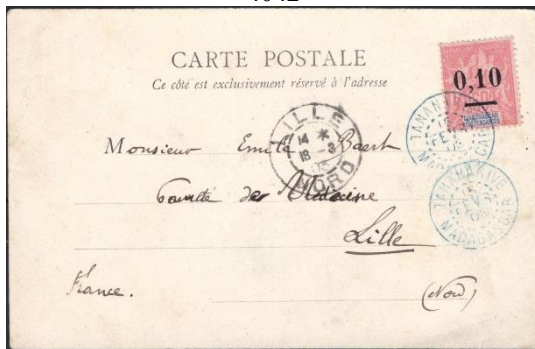 CARTE POSTALE
Ce côté est exclusivement réservé à l'adresse
0,10
LILLE
14 *
18 - 3
NORD
TANANARIVE
FEV
MADAGASCAR
TANANARIVE
FEV
MADAGASCAR
Monsieur Emile Baert
Faculté de Médecine
Lille
France.
(Nord)